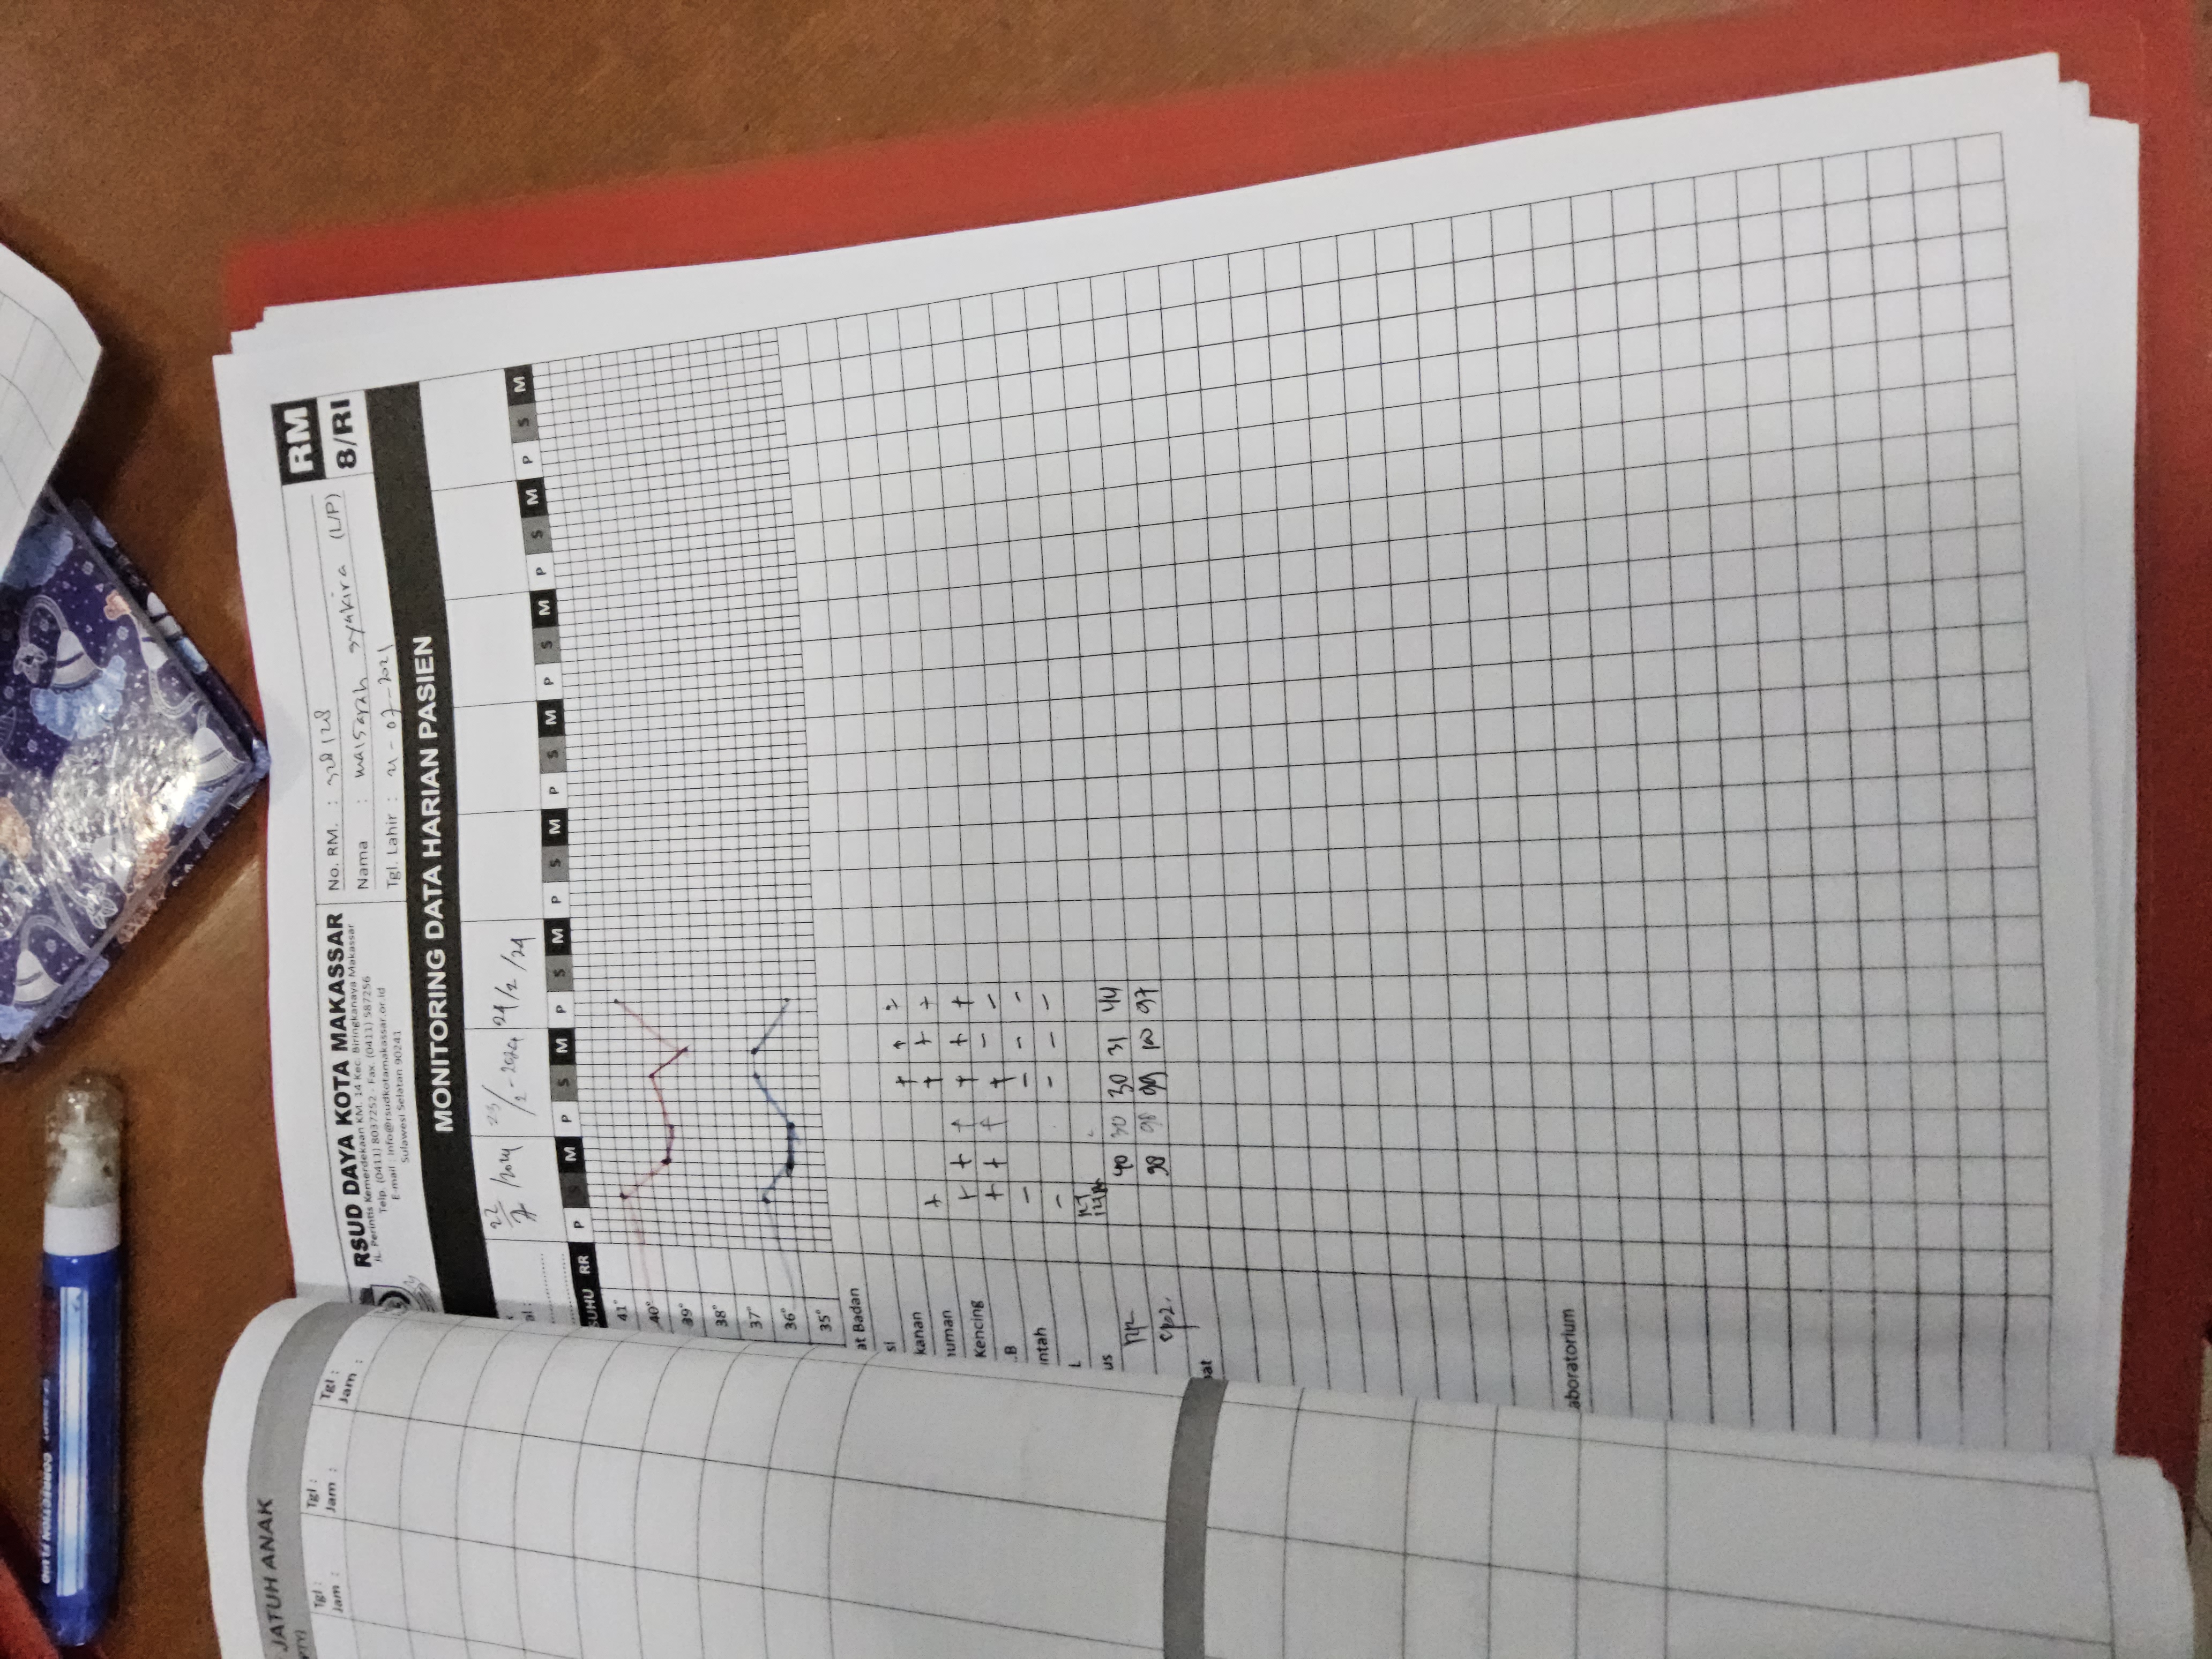 CORRECTION FLUID
JATUH ANAK
Tgl : Tgl : Tgl :
Jam : Jam : Jam :
RSUD DAYA KOTA MAKASSAR
JL. Perintis Kemerdekaan KM. 14 Kec. Biringkanaya Makassar
Telp. (0411) 8037252 - Fax. (0411) 587256
E-mail : info@rsudkotamakassar.or.id
Sulawesi Selatan 90241
No. RM. : 328128
Nama : maisarah syakira (L/P)
Tgl. Lahir : 21-07-2021
RM
8/RI
MONITORING DATA HARIAN PASIEN
al :
22/2 /2024 23/2-2024 24/2/24
SUHU RR P S M P S M P S M P S M P S M P S M P S M P S M
41°
40°
39°
38°
37°
36°
35°
at Badan
si
kanan + + ±
numan + + + +
Kencing + + + + + +
..B + + + + - -
untah - - - -
L - - - -
us
RR 40 30 30 31 44
spo2. 98 98 99 100 97
bat
aboratorium